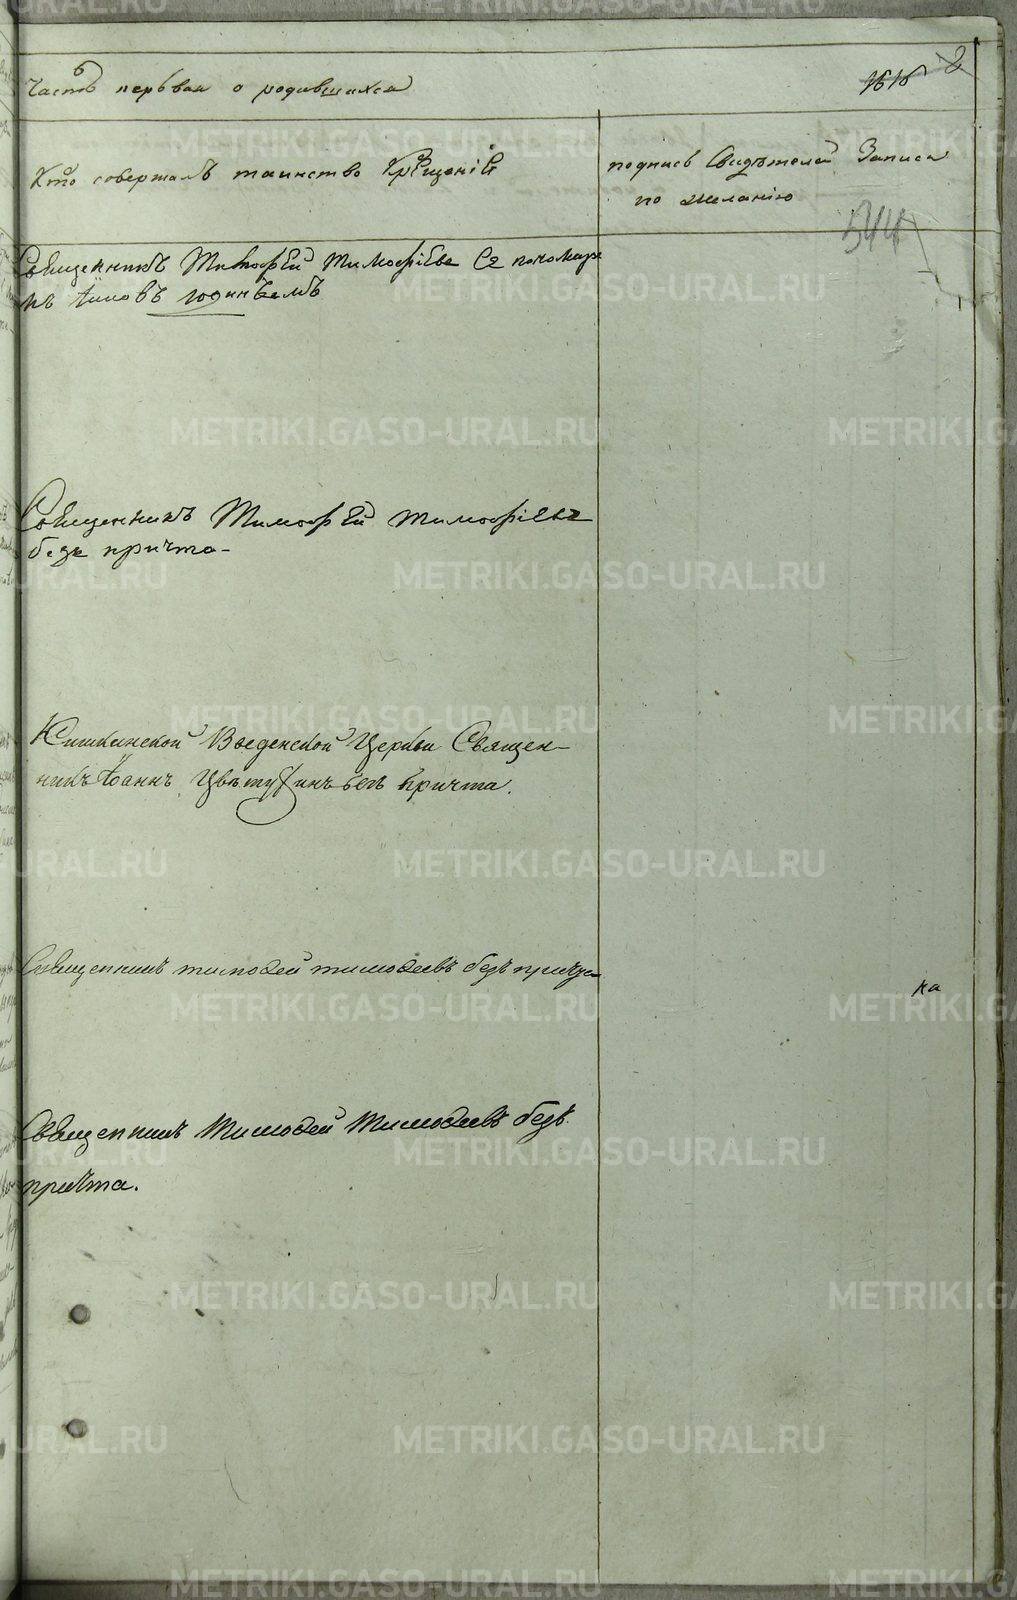 Часть первая о родившихся
1616 2
Кто совершалъ таинство Крѣщенiя
подпись Свидѣтелей Записи
по желанiю
544
Священникъ Тимофѣй Тимофiевъ Съ пономаре
мъ
Священникъ Тимофѣй Тимофiевъ
безъ причта-
Кишкинской Введенской Церкви Священ-
никъ Iоаннъ Цвѣтухинъ безъ причта.
Священникъ тимофей тимофеевъ безъ причта
на
Священникъ Тимофей Тимофеевъ безъ
причта.
METRIKI.GASO-URAL.RU